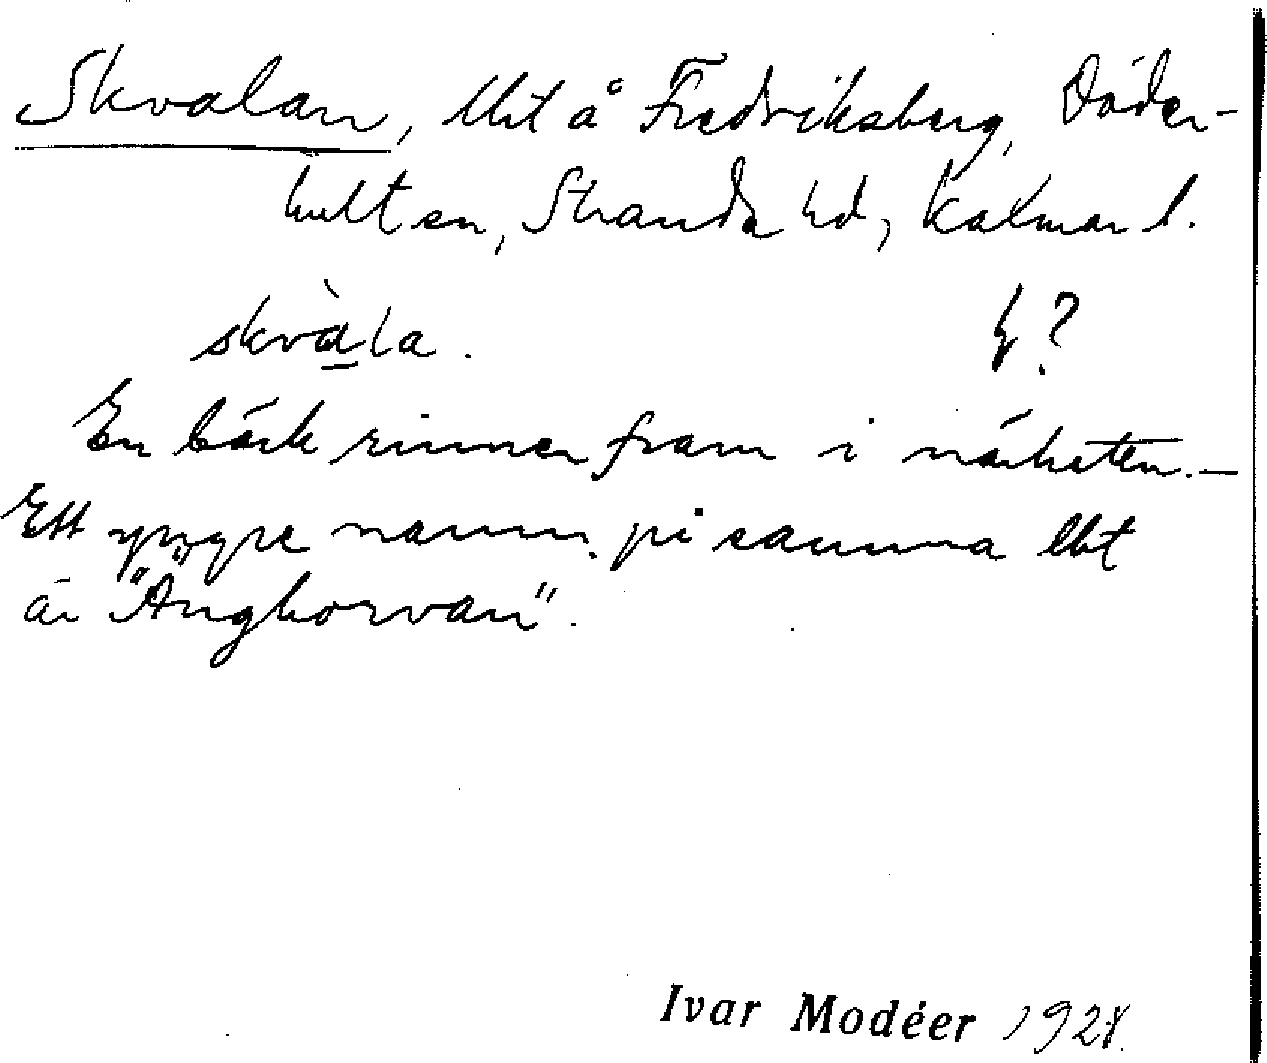 Skvalan, lht å Fredriksberg, Döder-
hult sn, Stranda hd, Kalmar l.
skvàla. ?
En bäck rinner fram i närheten. –
Ett yngre namn på samma lht
är "Ängkorvan".
Ivar Modéer 192